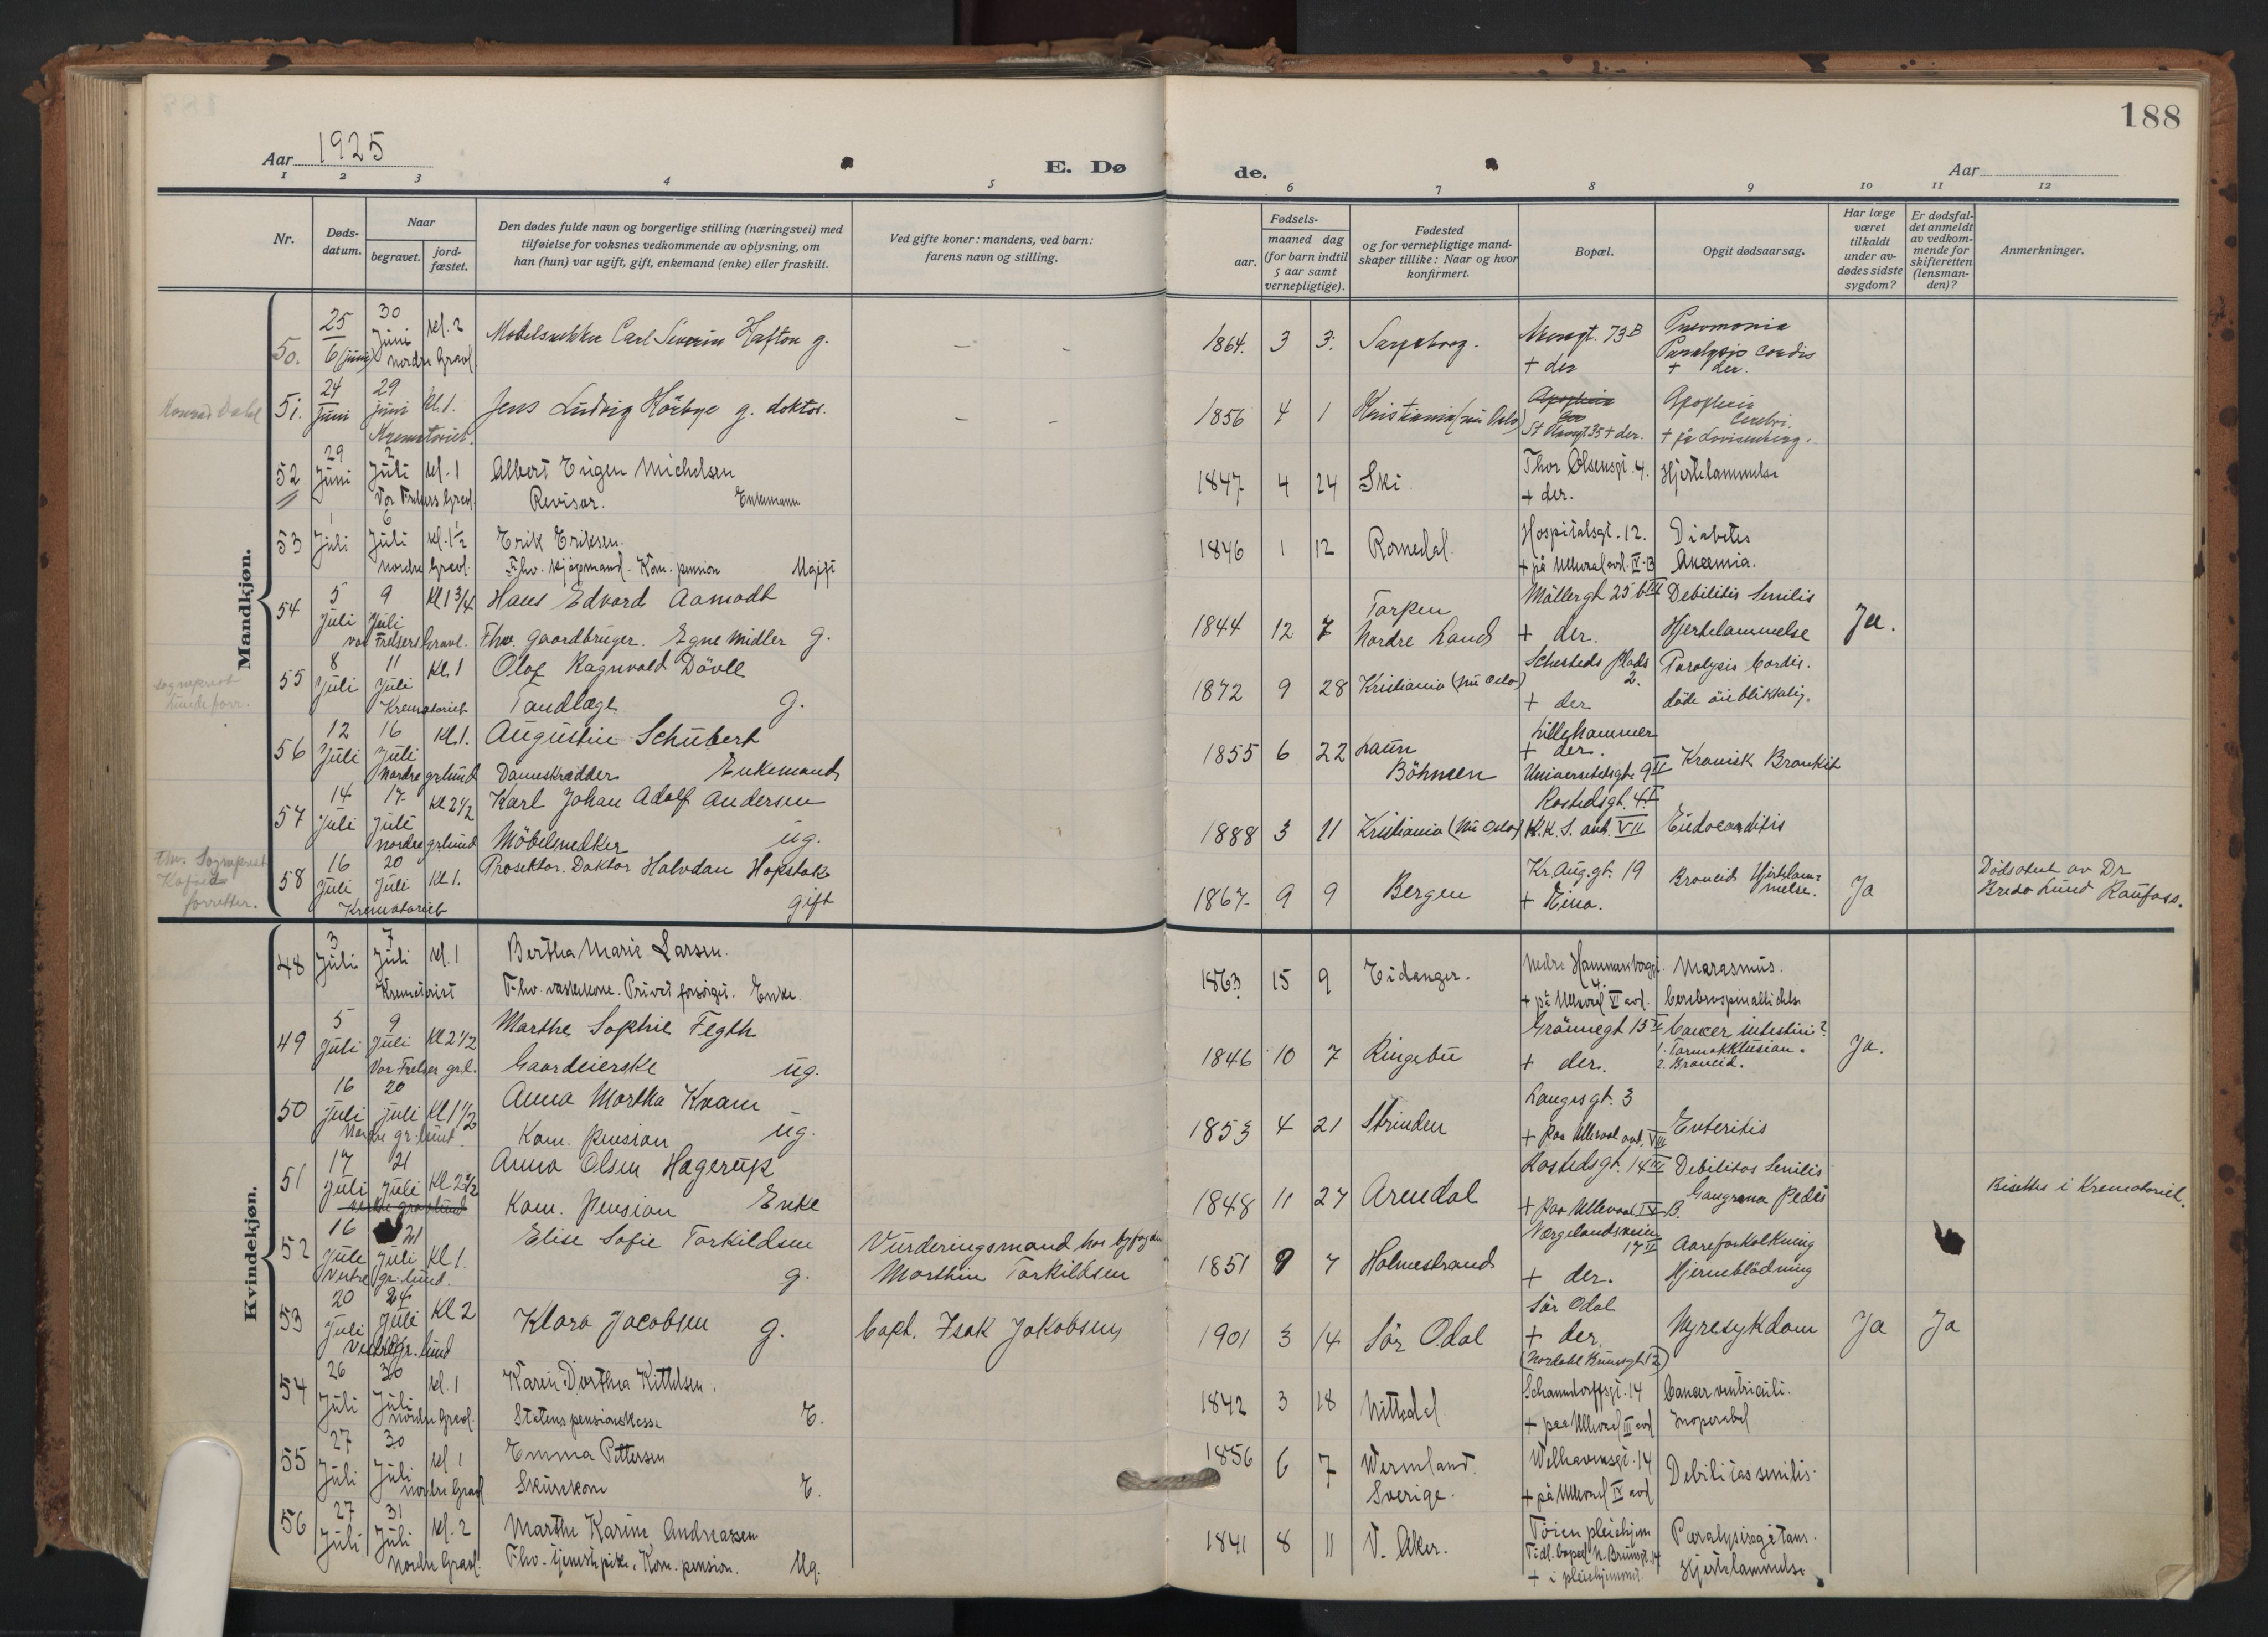 188
Aar 1925
E. Dø
de.
Aar
1 2 3 4 5 6 7 8 9 10 11 12
Nr.
Døds-
datum.
Naar
begravet.
jord-
fæstet.
Den dødes fulde navn og borgerlige stilling (næringsvei) med
tilføielse for voksnes vedkommende av oplysning, om
han (hun) var ugift, gift, enkemand (enke) eller fraskilt.
Ved gifte koner: mandens, ved barn:
farens navn og stilling.
Fødsels-
aar.
maaned dag
(for barn indtil
5 aar samt
vernepligtige).
Fødested
og for vernepligtige mand-
skaper tillike: Naar og hvor
konfirmert.
Bopæl.
Opgit dødsaarsag.
Har læge
været
tilkaldt
under av-
dødes sidste
sygdom?
Er dødsfal-
det anmeldt
av vedkom-
mende for
skifteretten
(lensman-
den)?
Anmerkninger.
Mandkjøn.
50. 25 30 Juni kl. 2 Carl Severin Hafton g. – – 1864. 3 3. Sarpsborg. 73 B Pneumonia
6 (juni) nordre Gravl. + der Paralysis cordis
+ der.
Konrad Dahl
51. 24 juni 29 juni kl. 1. Jens Ludvig Hörbye g. doktor. – – 1856 4 1 Kristiania (nu Oslo) Apoplexia
Krematoriet. St Olavsgt 35 + der. cerebri.
+ på Lovisenberg.
52 29 Juni 2 Juli kl. 1 Albert Eugen Michelsen 1847 4 24 Ski. Thor Olsensgt. 4. Hjertelammelse
Vor Frelsers Gravl. Revisor. Enkemann + der.
53 1 Juli 6 Juli kl. 1½ Erik Eriksen. 1846 1 12 Romedal. Hospitalsgt. 12. Diabetes
nordre Gravl. Fhv. kjøpmand. Kom. pension Ugift + på Ullevaal avd. IV-B Anæmia.
54 5 Juli 9 Juli Kl 1 3/4 Hans Edvard Aamodt 1844 12 7 Torpen Möllergt 25 b III Debilitis Senilis Ja.
vor Frelsers Gravl. Fhv. gaardbruger. Egne midler g. Nordre Land + der. Hjertelammelse
Sogneprest
55 8 Juli 11 Juli Kl 1 Olaf Ragnvald Dövle 1872 9 28 Kristiania (nu Oslo) Sehesteds plads 2. Paralysis Cordis.
Krematoriet Tandlæge g. + der döde öieblikkelig.
56 12 Juli 16 Juli Kl. 1. Augustin Schubert 1855 6 22 Laun Lillehammer
Nordre grlund Dameskrædder Enkemand Böhmen + der. Universitetsgt. 9 II Kronisk Bronkit
57 14 Juli 17 Juli Kl 2½ Karl Johan Adolf Andersen 1888 3 11 Kristiania (nu Oslo) Rostedsgt. 4 I Endocarditis
nordre grlund Möbelsnedker ug. K.K.S. avd. VII
Fhv. Sogneprest
forretter.
58 16 Juli 20 Juli Kl 1. Prosektor. Doktor Halvdan Hopstok 1867 9 9 Bergen Kr. Aug. gt. 19 Hjertelam- Ja Dödsattest av Dr
Krematoriet gift + Eina. melse. Bredo Lund Raufoss.
Kvindekjøn.
48 3 Juli 7 Juli kl. 1 Bertha Marie Larsen. 1863 15 9 Eidanger. Nedre Hammersborggt. 4. Marasmus.
Krematoriet Fhv. vaskekone. Privat forsørget. Enke. + på Ullevaal V avd.
49 5 Juli 9 Juli Kl 2½ Marthe Sophie Fegth 1846 10 7 Ringebu Grönnegt 15 Cancer intestini? Ja.
Vor Frelser gr.l. Gaardeierske ug. + der. 1. Tarmokklusion.
50 16 Juli 20 juli Kl 1½ Anna Martha Kvam 1853 4 21 Strinden Langesgt. 3 Enteritis
Nordre gr.lund Kom. Pension ug. + paa Ullevaal avd. VIII
51 17 Juli 21 Juli Kl 2½ Anna Olsen Hagerup 1848 11 27 Arendal Rostedsgt. 14 III Debilitas Senilis Bisettes i Krematoriet.
Kom. Pension Enke + paa Ullevaal IV B. Gangrena Pedis
52 16 Juli 21 Juli Kl 1. Elise Sofie Torkildsen Vurderingsmand hos byfogden 1851 9 7 Holmestrand Vergelandsveien 17 II Aareforkalkning
Vestre gr.lund. g. Marthin Torkildsen + der. Hjerneblödning
53 20 Juli 24 Juli Kl 2 Klara Jacobsen g. Capt. Isak Jakobsen 1901 3 14 Sör Odal Sör Odal Nyresykdom Ja Ja
Vestre gr.lund + der. (Nordahl Brunsgt 12)
54 26 Juli 30 Juli kl. 1 Karen Dorthea Kittelsen. 1842 3 18 Nittedal 14 Cancer ventriculi.
nordre Gravl. Statens pensionskasse E. + paa Ullevaal III avd Inoperabel
55 27 Juli 30 Juli kl 1 Emma Pettersen 1856 6 7 Wermland. Welhavensgt. 14 Debilitas senilis.
nordre Gravl Skurekone E. Sverige. + på Ullevaal IV avd
56 27 Juli 31 Juli kl. 2 Marthe Karine Andreassen 1841 8 11 V. Aker. Töien pleiehjem Paralysis agitans.
Nordre Gravl. Fhv. tjenestepike. Kom. pension. Ug. Tidl. bopæl N. Brunsgt. 14 Hjertelammelse
+ i pleiehjemmet.